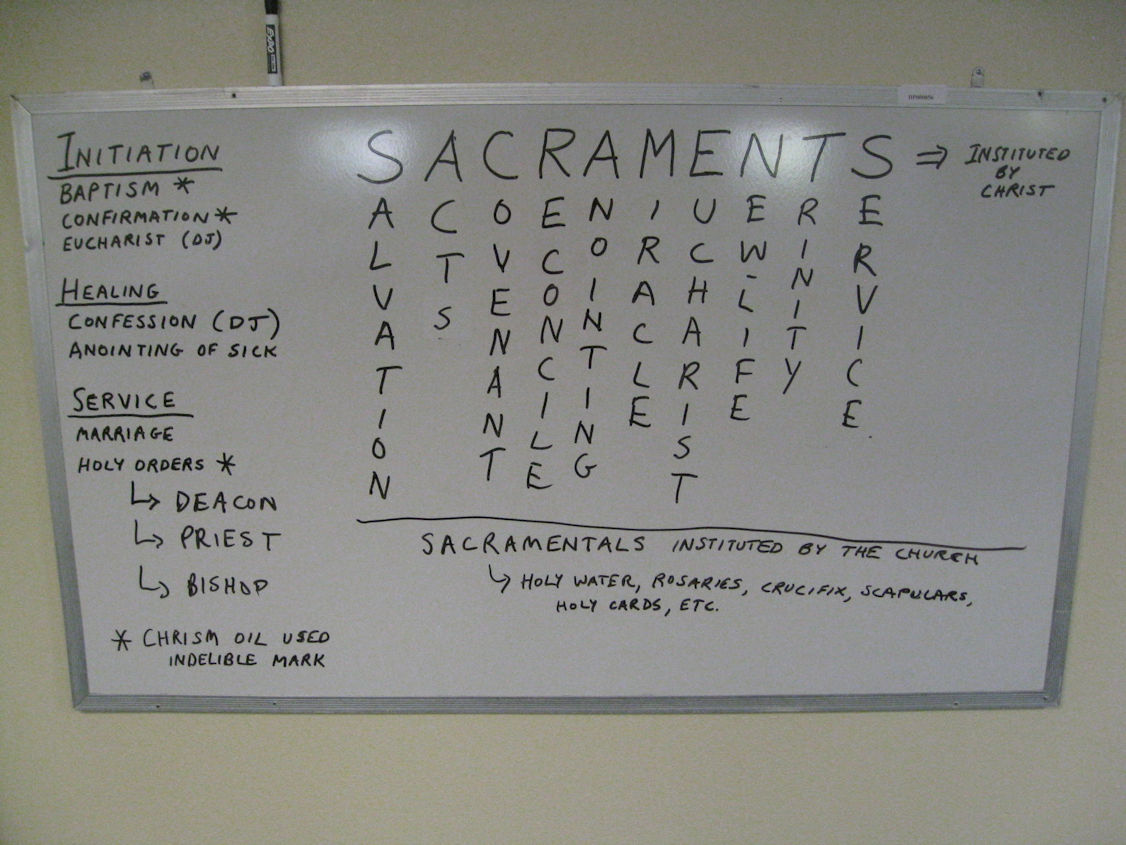 EXPO
INITIATION
BAPTISM *
CONFIRMATION *
EUCHARIST (DJ)
HEALING
CONFESSION (DJ)
ANOINTING OF SICK
SERVICE
MARRIAGE
HOLY ORDERS *
↳ DEACON
↳ PRIEST
↳ BISHOP
* CHRISM OIL USED
INDELIBLE MARK
SACRAMENTS ⇒ INSTITUTED
BY
CHRIST
SALVATION
ACTS
COVENANT
RECONCILE
ANOINTING
MIRACLE
EUCHARIST
NEW-LIFE
TRINITY
SERVICE
SACRAMENTALS INSTITUTED BY THE CHURCH
↳ HOLY WATER, ROSARIES, CRUCIFIX, SCAPULARS,
HOLY CARDS, ETC.